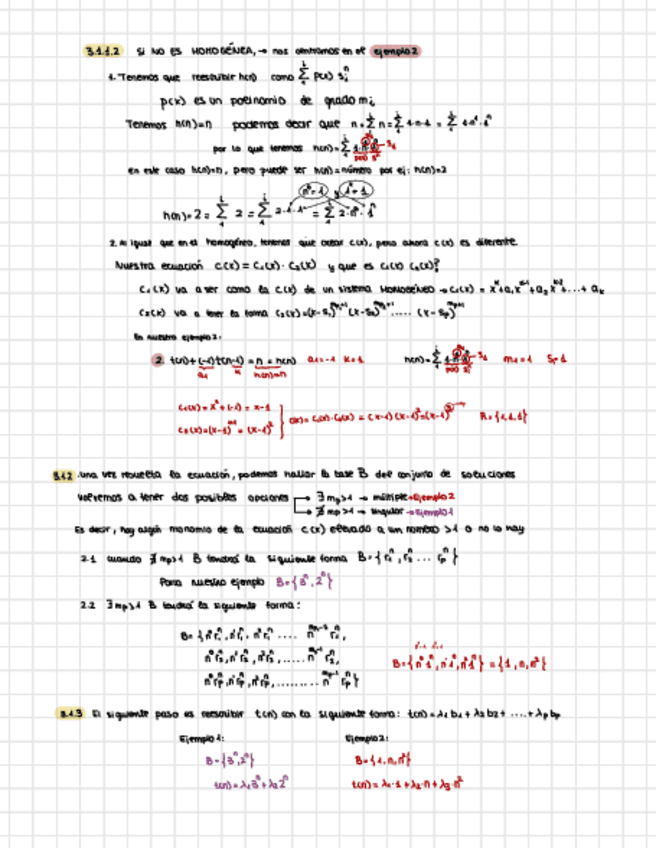 3.1.1.2 SI NO ES HOMOGÉNEA, → nos centramos en el ejemplo 2
1. Tenemos que reescribir h(n) como Σ p(x) s_i^n
p(x) es un polinomio de grado m_i
Tenemos h(n)=n podemos decir que n = Σ n = Σ 1·n·1 = Σ 1·n^1·1^n
por lo que tenemos h(n)= Σ 1·n·1^n → s_1
p(x) s^n
en este caso h(n)=n, pero puede ser h(n)=número por ej: h(n)=2
n^0=1 y 1^n=1
h(n)=2 = Σ 2 = Σ 2·1·1 = Σ 2·n^0·1^n
2. Al igual que en el homogéneo, tenemos que crear c(x), pero ahora c(x) es diferente.
Nuestra ecuación c(x) = c₁(x)·c₂(x) y que es c₁(x) c₂(x)?
c₁(x) va a ser como la c(x) de un sistema HOMOGÉNEO → c₁(x) = x^k + a₁x^k-1 + a₂x^k-2 + ... + a_k
c₂(x) va a tener la forma c₂(x)=(x-s₁)^m₁+1 (x-s₂)^m₂+1 ..... (x-s_p)^m_p+1
En nuestro ejemplo 2:
2. t(n)+(-1)t(n-1) = n = h(n) a₁=-1 k=1 h(n)= Σ 1·n·1^n → s_1 m₁=1 s₁=1
a₁ k h(n)=n p(x) s^n
c₁(x) = x^1 + (-1) = x-1
c₂(x)=(x-1)^1+1 = (x-1)^2
c(x)= c₁(x)·c₂(x) = (x-1)(x-1)^2=(x-1)^3 R={1,1,1}
3.1.2 una vez resuelta la ecuación, podemos hallar la base B del conjunto de soluciones
volvemos a tener dos posibles opciones → ∃ mp>1 → múltiple → Ejemplo 2
→ ∄ mp>1 → singular → Ejemplo 1
Es decir, hay algún monomio de la ecuación c(x) elevado a un número >1 o no lo hay
2.1 cuando ∄ mp>1 B tendrá la siguiente forma B={r₁^n, r₂^n ... r_p^n}
Para nuestro ejemplo B={3^n, 2^n}
2.2 ∃ mp>1 B tendrá la siguiente forma:
B= {n^0r₁^n, n^1r₁^n, n^2r₁^n .... n^m₁-1 r₁^n,
n^0r₂^n, n^1r₂^n, n^2r₂^n, ..... n^m₂-1 r₂^n,
n^0r_p^n, n^1r_p^n, n^2r_p^n, ......... n^m_p-1 r_p^n}
B={n^0 1^n, n^1 1^n, n^2 1^n} = {1, n, n^2}
3.1.3 El siguiente paso es reescribir t(n) con la siguiente forma: t(n)=λ₁b₁+λ₂b₂+ ....+λ_pb_p
Ejemplo 1: Ejemplo 2:
B={3^n, 2^n} B={1, n, n^2}
t(n)=λ₁3^n+λ₂2^n t(n)=λ₁·1+λ₂·n+λ₃·n^2